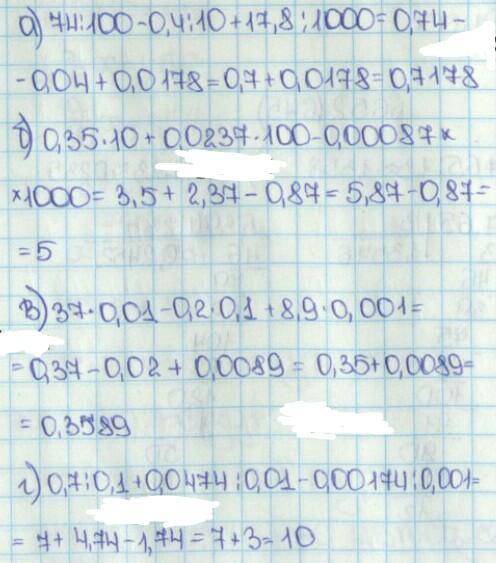 а) 74:100-0,4:10+17,8:1000=0,74-
-0,04+0,0178=0,7+0,0178=0,7178
б) 0,35·10+0,0237·100-0,00087×
×1000=3,5+2,37-0,87=5,87-0,87=
=5
в) 37·0,01-0,2·0,1+8,9·0,001=
=0,37-0,02+0,0089=0,35+0,0089=
=0,3589
г) 0,7:0,1+0,0474:0,01-0,00174:0,001=
=7+4,74-1,74=7+3=10